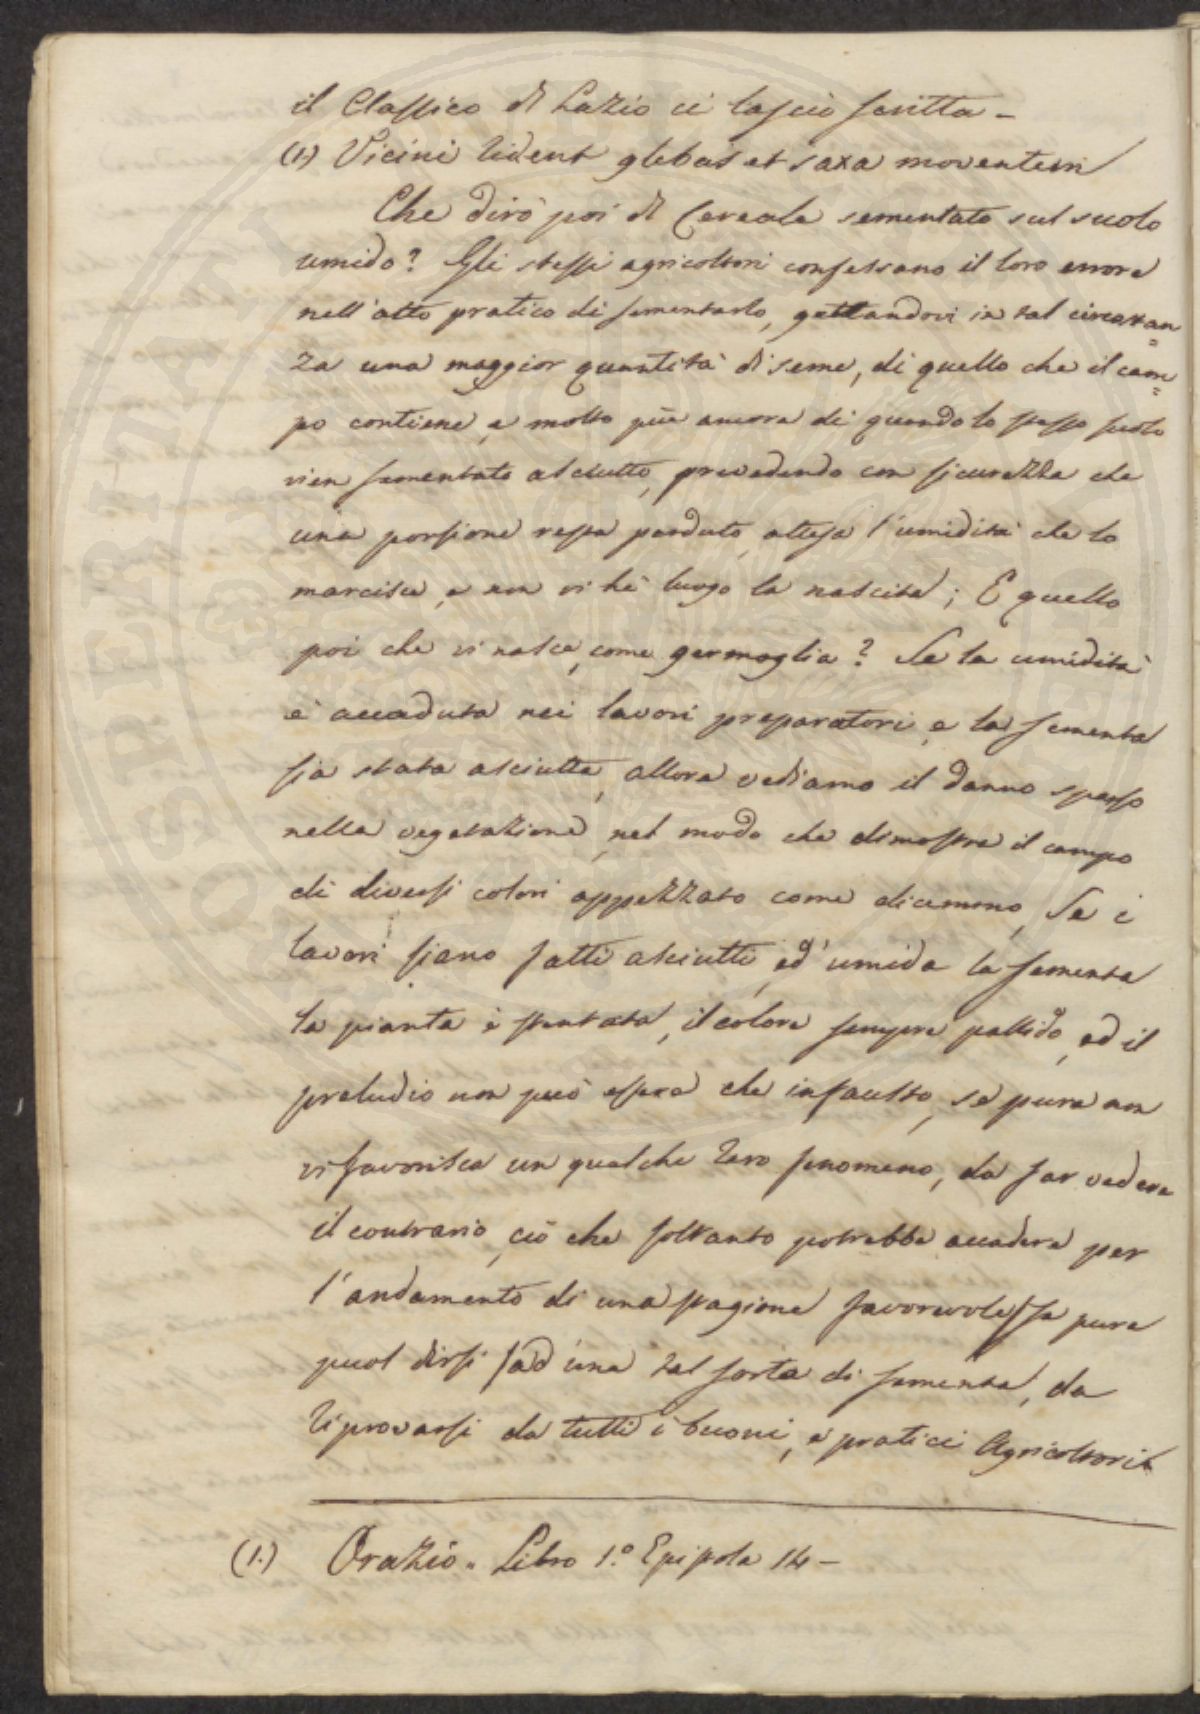 il Classico di Lazio ci lasciò scritto -
(1.) Vicini rident glebas et saxa moventem
Che dirò poi di Cereale sementato sul suolo
umido? Gli stessi agricoltori confessano il loro errore
nell'atto pratico di sementarlo, gettandovi in tal circostan=
za una maggior quantità di seme, di quello che il cam=
po contiene, e molto più ancora di quando lo stesso suolo
vien sementato asciutto, prevedendo con sicurezza che
una porsione resta perduta, attesa l'umidità che lo
marcisce, e non vi hè luogo la nascita; E quello
poi che vi nasce, come germoglia? Se la umidità
è accaduta nei lavori preparatori, e la sementa
sia stata asciutta, allora vediamo il danno sparso
nella vegetazione, nel modo che dimostra il campo
di diversi colori appezzato come dicemmo, Se i
lavori siano fatti asciutti, ed' umida la sementa
la pianta è stentata, il colore sempre pallido, ed il
preludio non può essere che infausto, se pure non
vi favorisca un qualche raro fenomeno, da far vedere
il contrario, ciò che soltanto potrebbe accadere per
l'andamento di una stagione favorevole (se pure
puol dirsi) ad una tal sorta di sementa, da
riprovarsi da tutti i buoni, e pratici Agricoltori.
(1.) Orazio. Libro 1.° Epistola 14 -
OSPERITATI PU